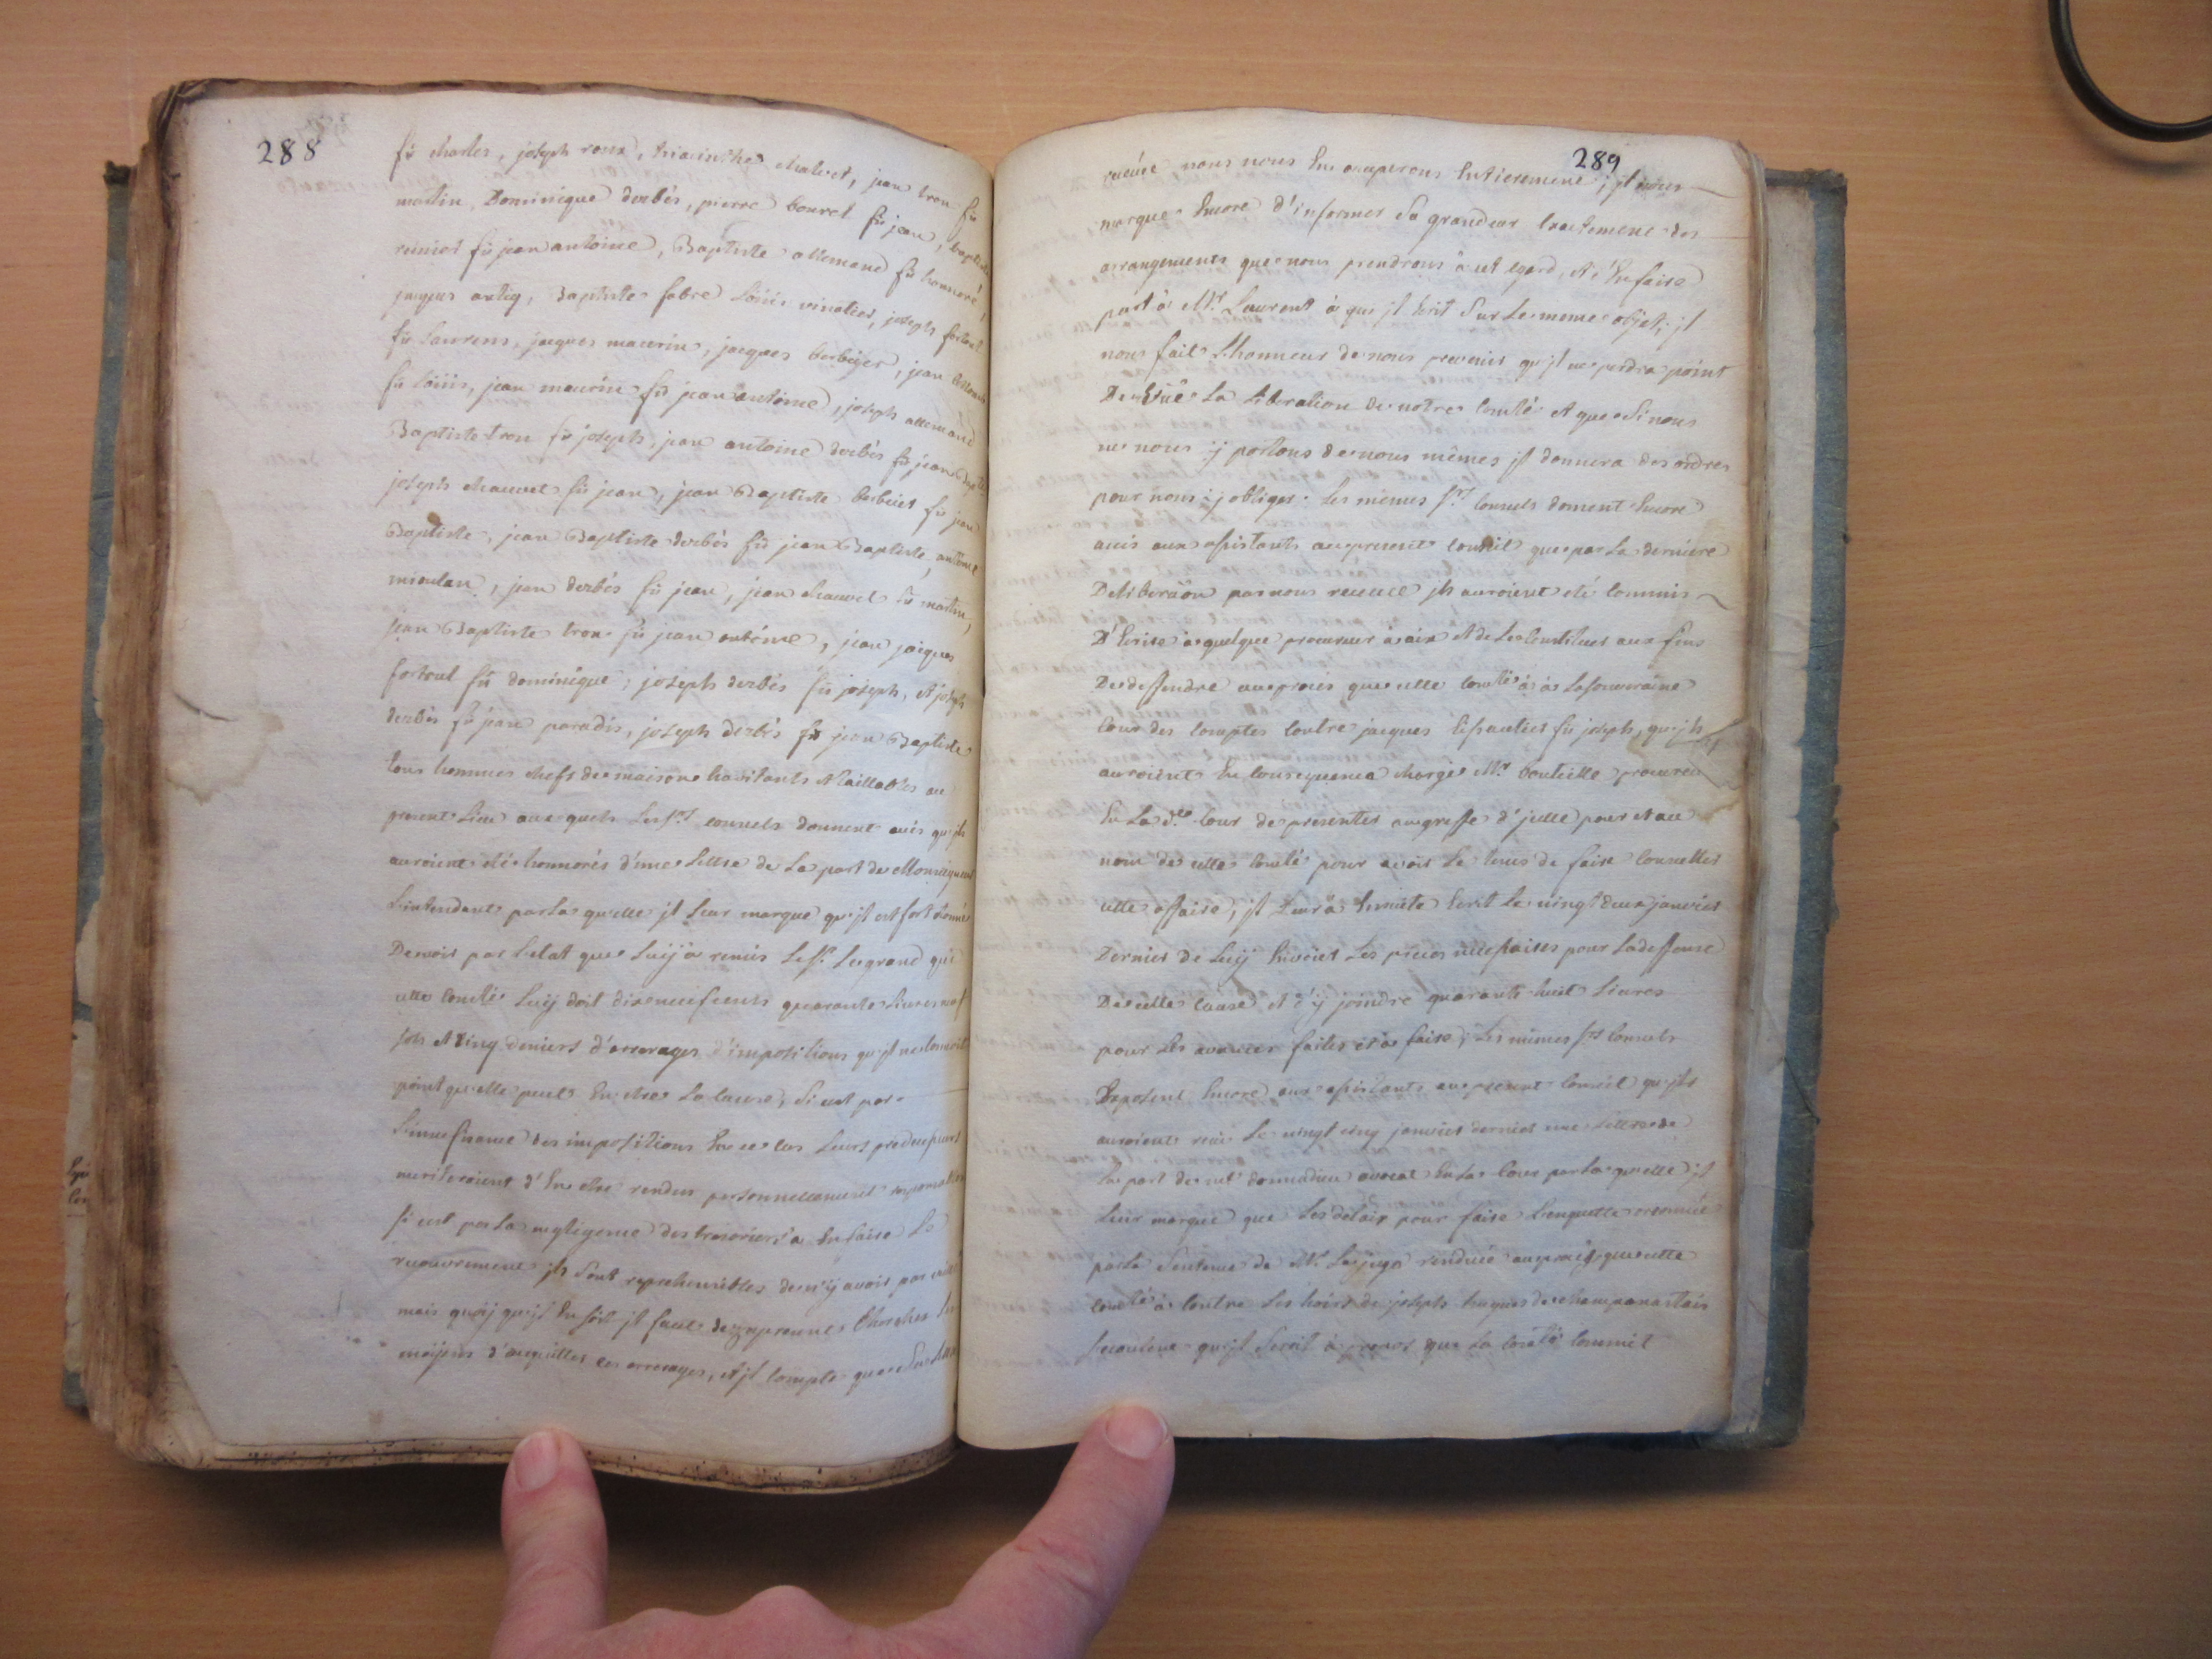 288
fû charles, joseph roux, hiacinthe chalvet, jean tron fû
martin, Dominique derbés, pierre bouvet fû jean, baptiste
fû jean antoine, Baptiste allemand fû honnoré,
jacques antiq, Baptiste fabre Loüis vinatier, joseph fortoul
fû Laurens, jacques maurin, jacques berbeyer, jean
fû Loüis, jean maurin fû jean antoine, joseph allemand
Baptiste tron fû joseph, jean antoine derbés fû jean
joseph chauvet fû jean, jean Baptiste berbeier fû jean
Baptiste, jean Baptiste derbés fû jean Baptiste, antoine
mioulan, jean derbés fû jean, jean chauvet fû martin,
jean Baptiste tron fû jean antoine, jean jacques
fortoul fû dominique, joseph derbés fû joseph, et joseph
derbés fû jean paradis, joseph derbés fû jean Baptiste
tous hommes chefs de maison habitants et taillables au
present Lieu aux quels Les srs consuls donnent avis qu'jls
auroient eté honnorés d'une Lettre de La part de Monseigneur
L'intendant par La quelle jl Leur marque qu'jl est fort étonné
De voir par L'etat que Luÿ a remis Le sr Le grand que
cette comté Luÿ doit dix neuf cents quarante Livres neuf
sols et cinq deniers d'arrerages d'impositions qu'jl ne connoit
point quelle peut En etre La cause, si c'est par
L'insufisance des impositions En ce cas Leurs predecesseurs
meriteroient d'En etre rendus personnellement
si c'est par La negligence des tresoriers a En faire Le
recouvrement jls sont reprehensibles de n'ÿ avoir pas
mais quoÿ qu'jl En soit jl faut Chercher Les
moÿens d'acquitter ces arrerages, et jl compte que
289
receüe nous nous En occuperons Entierement; jl nous
marque Encore d'informer Sa grandeur Exactement des
arrangements que nous prendrons a cet egard, et d'En faire
part à Mr Laurent à qui jl Ecrit Sur Le meme objet; jl
nous fait L'honneur de nous prevenir qu'jl ne perdra point
De vüe La Liberation de notre comté et que Si nous
ne nous ÿ portons de nous mêmes jl donnera des ordres
pour nous ÿ obliger. Les mêmes srs consuls donnent Encore
avis aux assistants au present conseil que par La derniere
Deliberaõn par nous receüe jls auroient eté commis
D'Ecrire à quelque procureur à aix et de Le Constituer aux fins
De deffendre au procés que cette comté a à La Souveraine
Cour des comptes contre jacques Lipautier fû joseph, qu'jls
auroient En consequence chargé Mr bouteille procureur
En La dte Cour de presenter au greffe d'jcelle pour et au
nom de cette comté pour avoir Le tems de faire consulter
cette affaire, jl Leur a Ensuite Ecrit Le vingt deux janvier
Dernier de Luÿ Envoier Les pieces necessaires pour La deffense
De cette cause et d'ÿ joindre quarante huit Livres
pour Les avances faites et à faire; Les mêmes srs consuls
Exposent Encore aux assistants au present conseil qu'jls
auroient recû Le vingt cinq janvier dernier une Lettre de
La part de me donnadieu avocat En La Cour par La quelle jl
Leur marque que Les delais pour faire L'enquette ordonnée
par La Sentence de Mr Le juge renduë au procés que cette
comté a contre Les hoirs de joseph hugues de champanastais
s'ecoulent qu'jl Seroit à propos que La comté commit